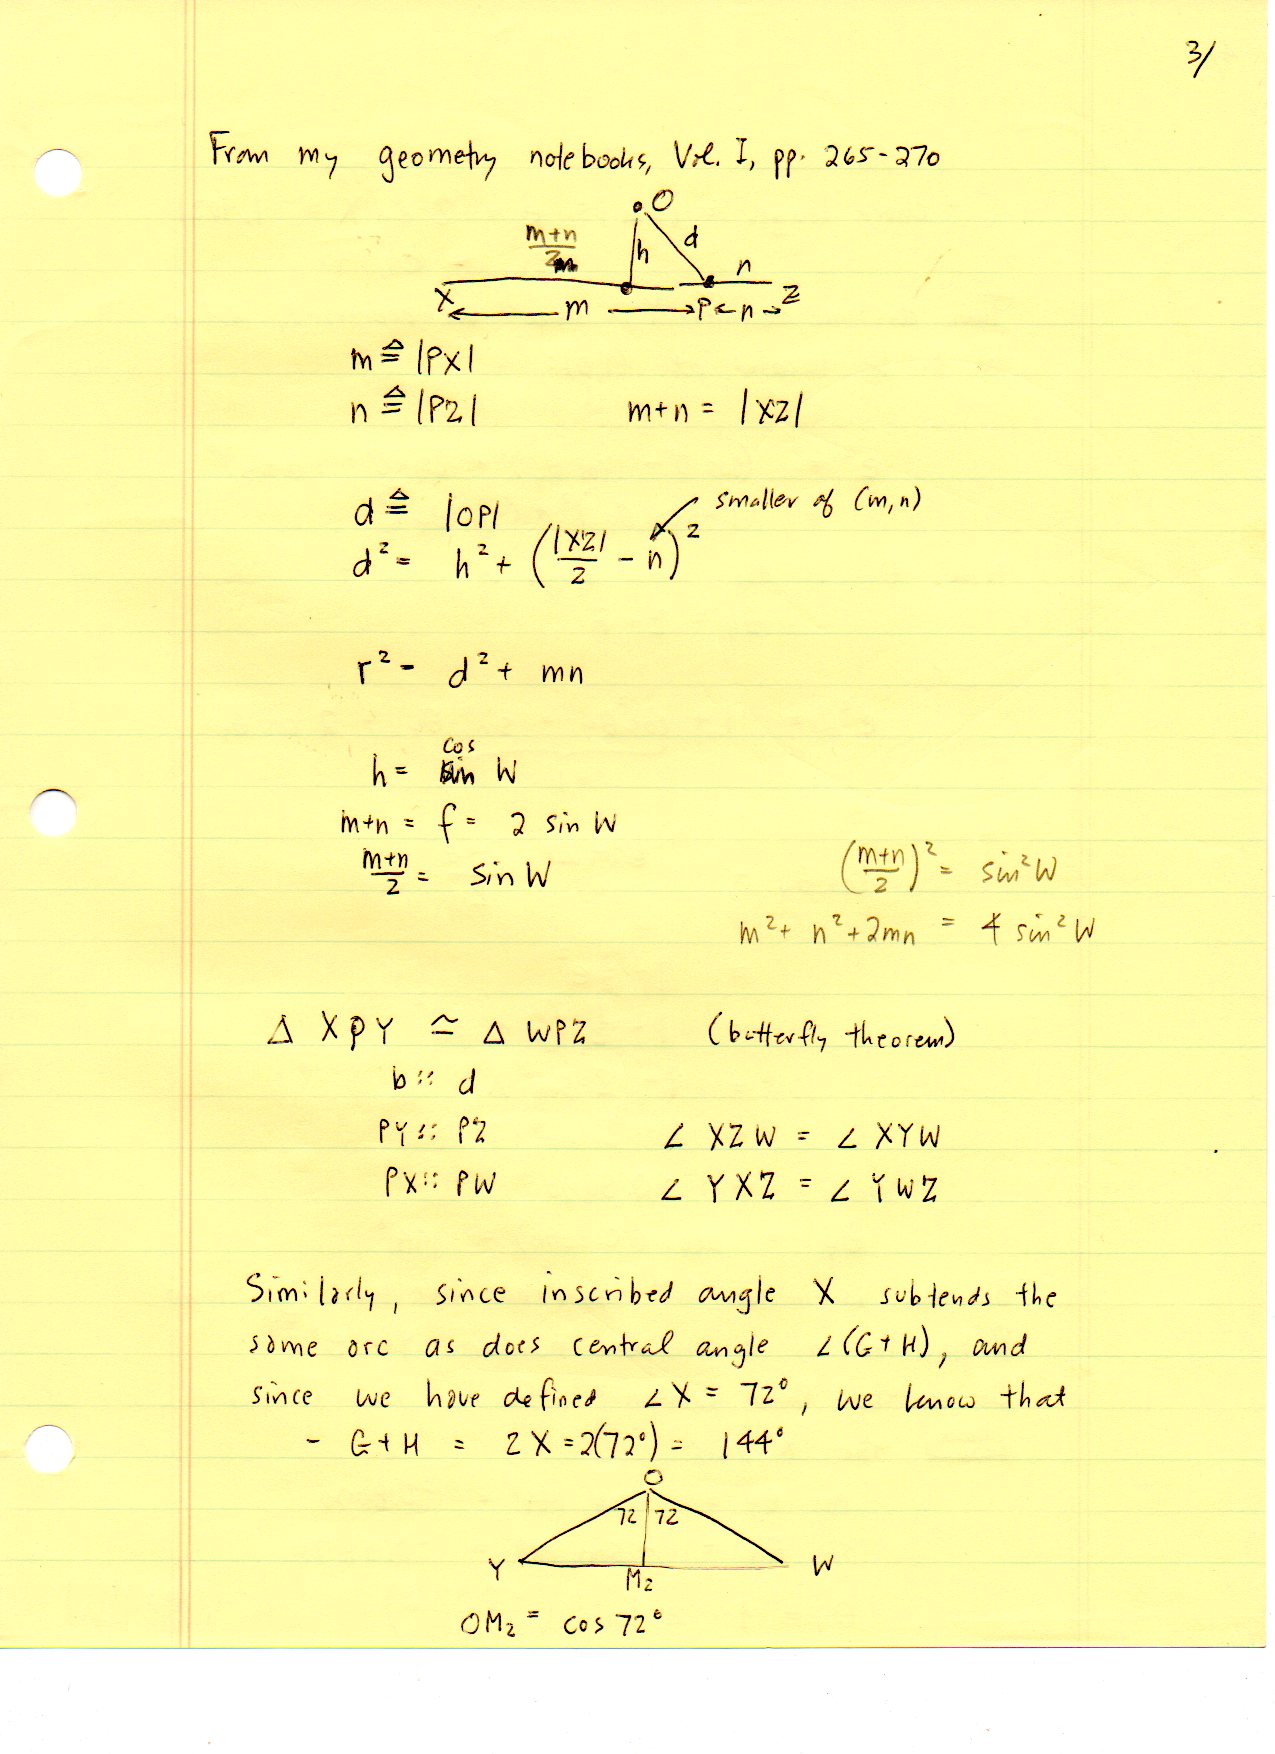 3/
From my geometry notebooks, Vol. I, pp. 265-270
O
m+n
h d
2
n
X Z
m P n
m ≙ |PX|
n ≙ |PZ| m+n = |XZ|
d ≙ |OP| smaller of (m,n)
d² = h² + (|XZ|/2 - n)²
r² = d² + mn
cos
h = sin W
m+n = f = 2 sin W
(m+n)/2 = sin W ((m+n)/2)² = sin² W
m² + n² + 2mn = 4 sin² W
Δ XPY ≅ Δ WPZ (butterfly theorem)
b :: d
PY :: PZ ∠ XZW = ∠ XYW
PX :: PW ∠ YXZ = ∠ YWZ
Similarly, since inscribed angle X subtends the
same arc as does central angle ∠(G+H), and
since we have defined ∠X = 72°, we know that
- G+H = 2X = 2(72°) = 144°
O
72 72
Y M₂ W
OM₂ = cos 72°